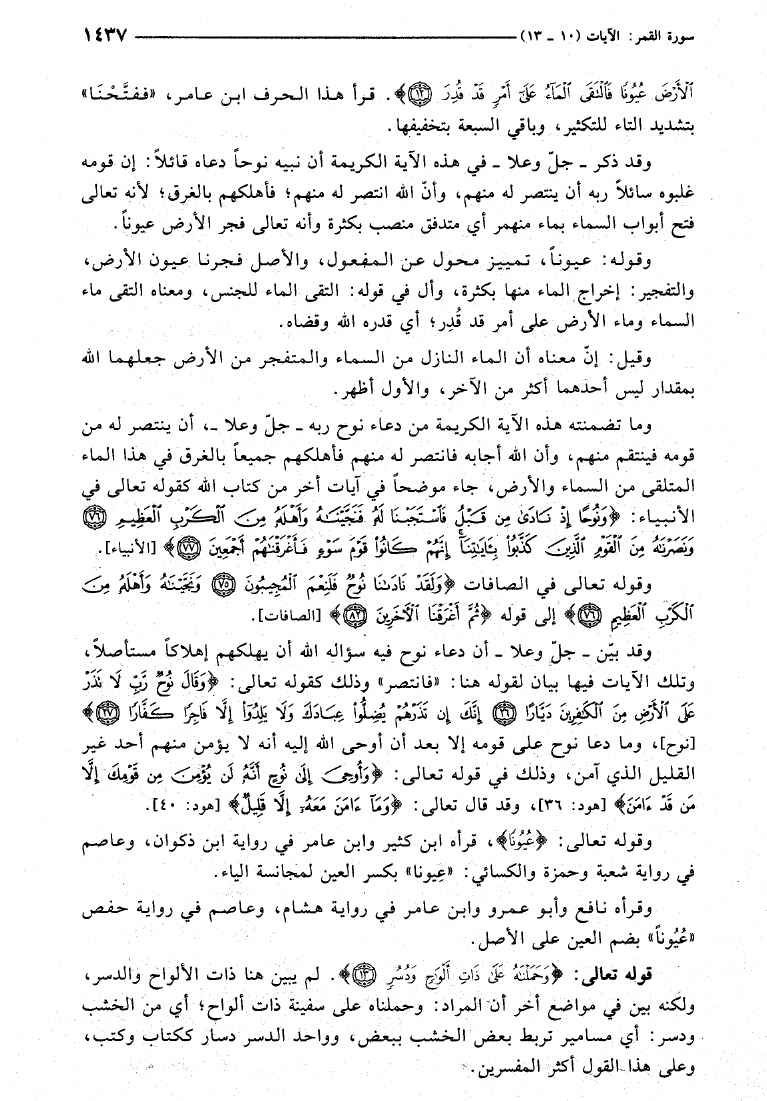 سورة القمر: الآيات (١٠ - ١٣) ١٤٣٧
ٱلْأَرْضَ عُيُونًا فَٱلْتَقَى ٱلْمَآءُ عَلَىٰٓ أَمْرٍ قَدْ قُدِرَ ﴿١٢﴾﴾. قرأ هذا الحرف ابن عامر، «ففتَّحْنَا»
بتشديد التاء للتكثير، وباقي السبعة بتخفيفها.
وقد ذكر - جلّ وعلا - في هذه الآية الكريمة أن نبيه نوحاً دعاه قائلاً: إن قومه
غلبوه سائلاً ربه أن ينتصر له منهم، وأنّ الله انتصر له منهم؛ فأهلكهم بالغرق؛ لأنه تعالى
فتح أبواب السماء بماء منهمر أي متدفق منصب بكثرة وأنه تعالى فجر الأرض عيوناً.
وقوله: عيوناً، تمييز محول عن المفعول، والأصل فجرنا عيون الأرض،
والتفجير: إخراج الماء منها بكثرة، وأل في قوله: التقى الماء للجنس، ومعناه التقى ماء
السماء وماء الأرض على أمر قد قُدِر؛ أي قدره الله وقضاه.
وقيل: إنّ معناه أن الماء النازل من السماء والمتفجر من الأرض جعلهما الله
بمقدار ليس أحدهما أكثر من الآخر، والأول أظهر.
وما تضمنته هذه الآية الكريمة من دعاء نوح ربه - جلّ وعلا -، أن ينتصر له من
قومه فينتقم منهم، وأن الله أجابه فانتصر له منهم فأهلكهم جميعاً بالغرق في هذا الماء
المتلقى من السماء والأرض، جاء موضحاً في آيات أخر من كتاب الله كقوله تعالى في
الأنبياء: ﴿وَنُوحًا إِذْ نَادَىٰ مِن قَبْلُ فَٱسْتَجَبْنَا لَهُۥ فَنَجَّيْنَٰهُ وَأَهْلَهُۥ مِنَ ٱلْكَرْبِ ٱلْعَظِيمِ ﴿٧٦﴾
وَنَصَرْنَٰهُ مِنَ ٱلْقَوْمِ ٱلَّذِينَ كَذَّبُوا۟ بِـَٔايَٰتِنَآ إِنَّهُمْ كَانُوا۟ قَوْمَ سَوْءٍ فَأَغْرَقْنَٰهُمْ أَجْمَعِينَ ﴿٧٧﴾﴾ [الأنبياء].
وقوله تعالى في الصافات ﴿وَلَقَدْ نَادَىٰنَا نُوحٌ فَلَنِعْمَ ٱلْمُجِيبُونَ ﴿٧٥﴾ وَنَجَّيْنَٰهُ وَأَهْلَهُۥ مِنَ
ٱلْكَرْبِ ٱلْعَظِيمِ ﴿٧٦﴾﴾ إلى قوله ﴿ثُمَّ أَغْرَقْنَا ٱلْآخَرِينَ ﴿٨٢﴾﴾ [الصافات].
وقد بيّن - جلّ وعلا - أن دعاء نوح فيه سؤاله الله أن يهلكهم إهلاكاً مستأصلاً،
وتلك الآيات فيها بيان لقوله هنا: «فانتصر» وذلك كقوله تعالى: ﴿وَقَالَ نُوحٌ رَّبِّ لَا تَذَرْ
عَلَى ٱلْأَرْضِ مِنَ ٱلْكَٰفِرِينَ دَيَّارًا ﴿٢٦﴾ إِنَّكَ إِن تَذَرْهُمْ يُضِلُّوا۟ عِبَادَكَ وَلَا يَلِدُوٓا۟ إِلَّا فَاجِرًا كَفَّارًا ﴿٢٧﴾﴾
[نوح]، وما دعا نوح على قومه إلا بعد أن أوحى الله إليه أنه لا يؤمن منهم أحد غير
القليل الذي آمن، وذلك في قوله تعالى: ﴿وَأُوحِىَ إِلَىٰ نُوحٍ أَنَّهُۥ لَن يُؤْمِنَ مِن قَوْمِكَ إِلَّا
مَن قَدْ ءَامَنَ﴾ [هود: ٣٦]، وقد قال تعالى: ﴿وَمَآ ءَامَنَ مَعَهُۥٓ إِلَّا قَلِيلٌ﴾ [هود: ٤٠].
وقوله تعالى: ﴿عُيُونًا﴾، قرأه ابن كثير وابن عامر في رواية ابن ذكوان، وعاصم
في رواية شعبة وحمزة والكسائي: «عِيونا» بكسر العين لمجانسة الياء.
وقرأه نافع وأبو عمرو وابن عامر في رواية هشام، وعاصم في رواية حفص
«عُيُوناً» بضم العين على الأصل.
قوله تعالى: ﴿وَحَمَلْنَٰهُ عَلَىٰ ذَاتِ أَلْوَٰحٍ وَدُسُرٍ ﴿١٣﴾﴾. لم يبين هنا ذات الألواح والدسر،
ولكنه بين في مواضع أخر أن المراد: وحملناه على سفينة ذات ألواح؛ أي من الخشب
ودسر: أي مسامير تربط بعض الخشب ببعض، وواحد الدسر دسار ككتاب وكتب،
وعلى هذا القول أكثر المفسرين.